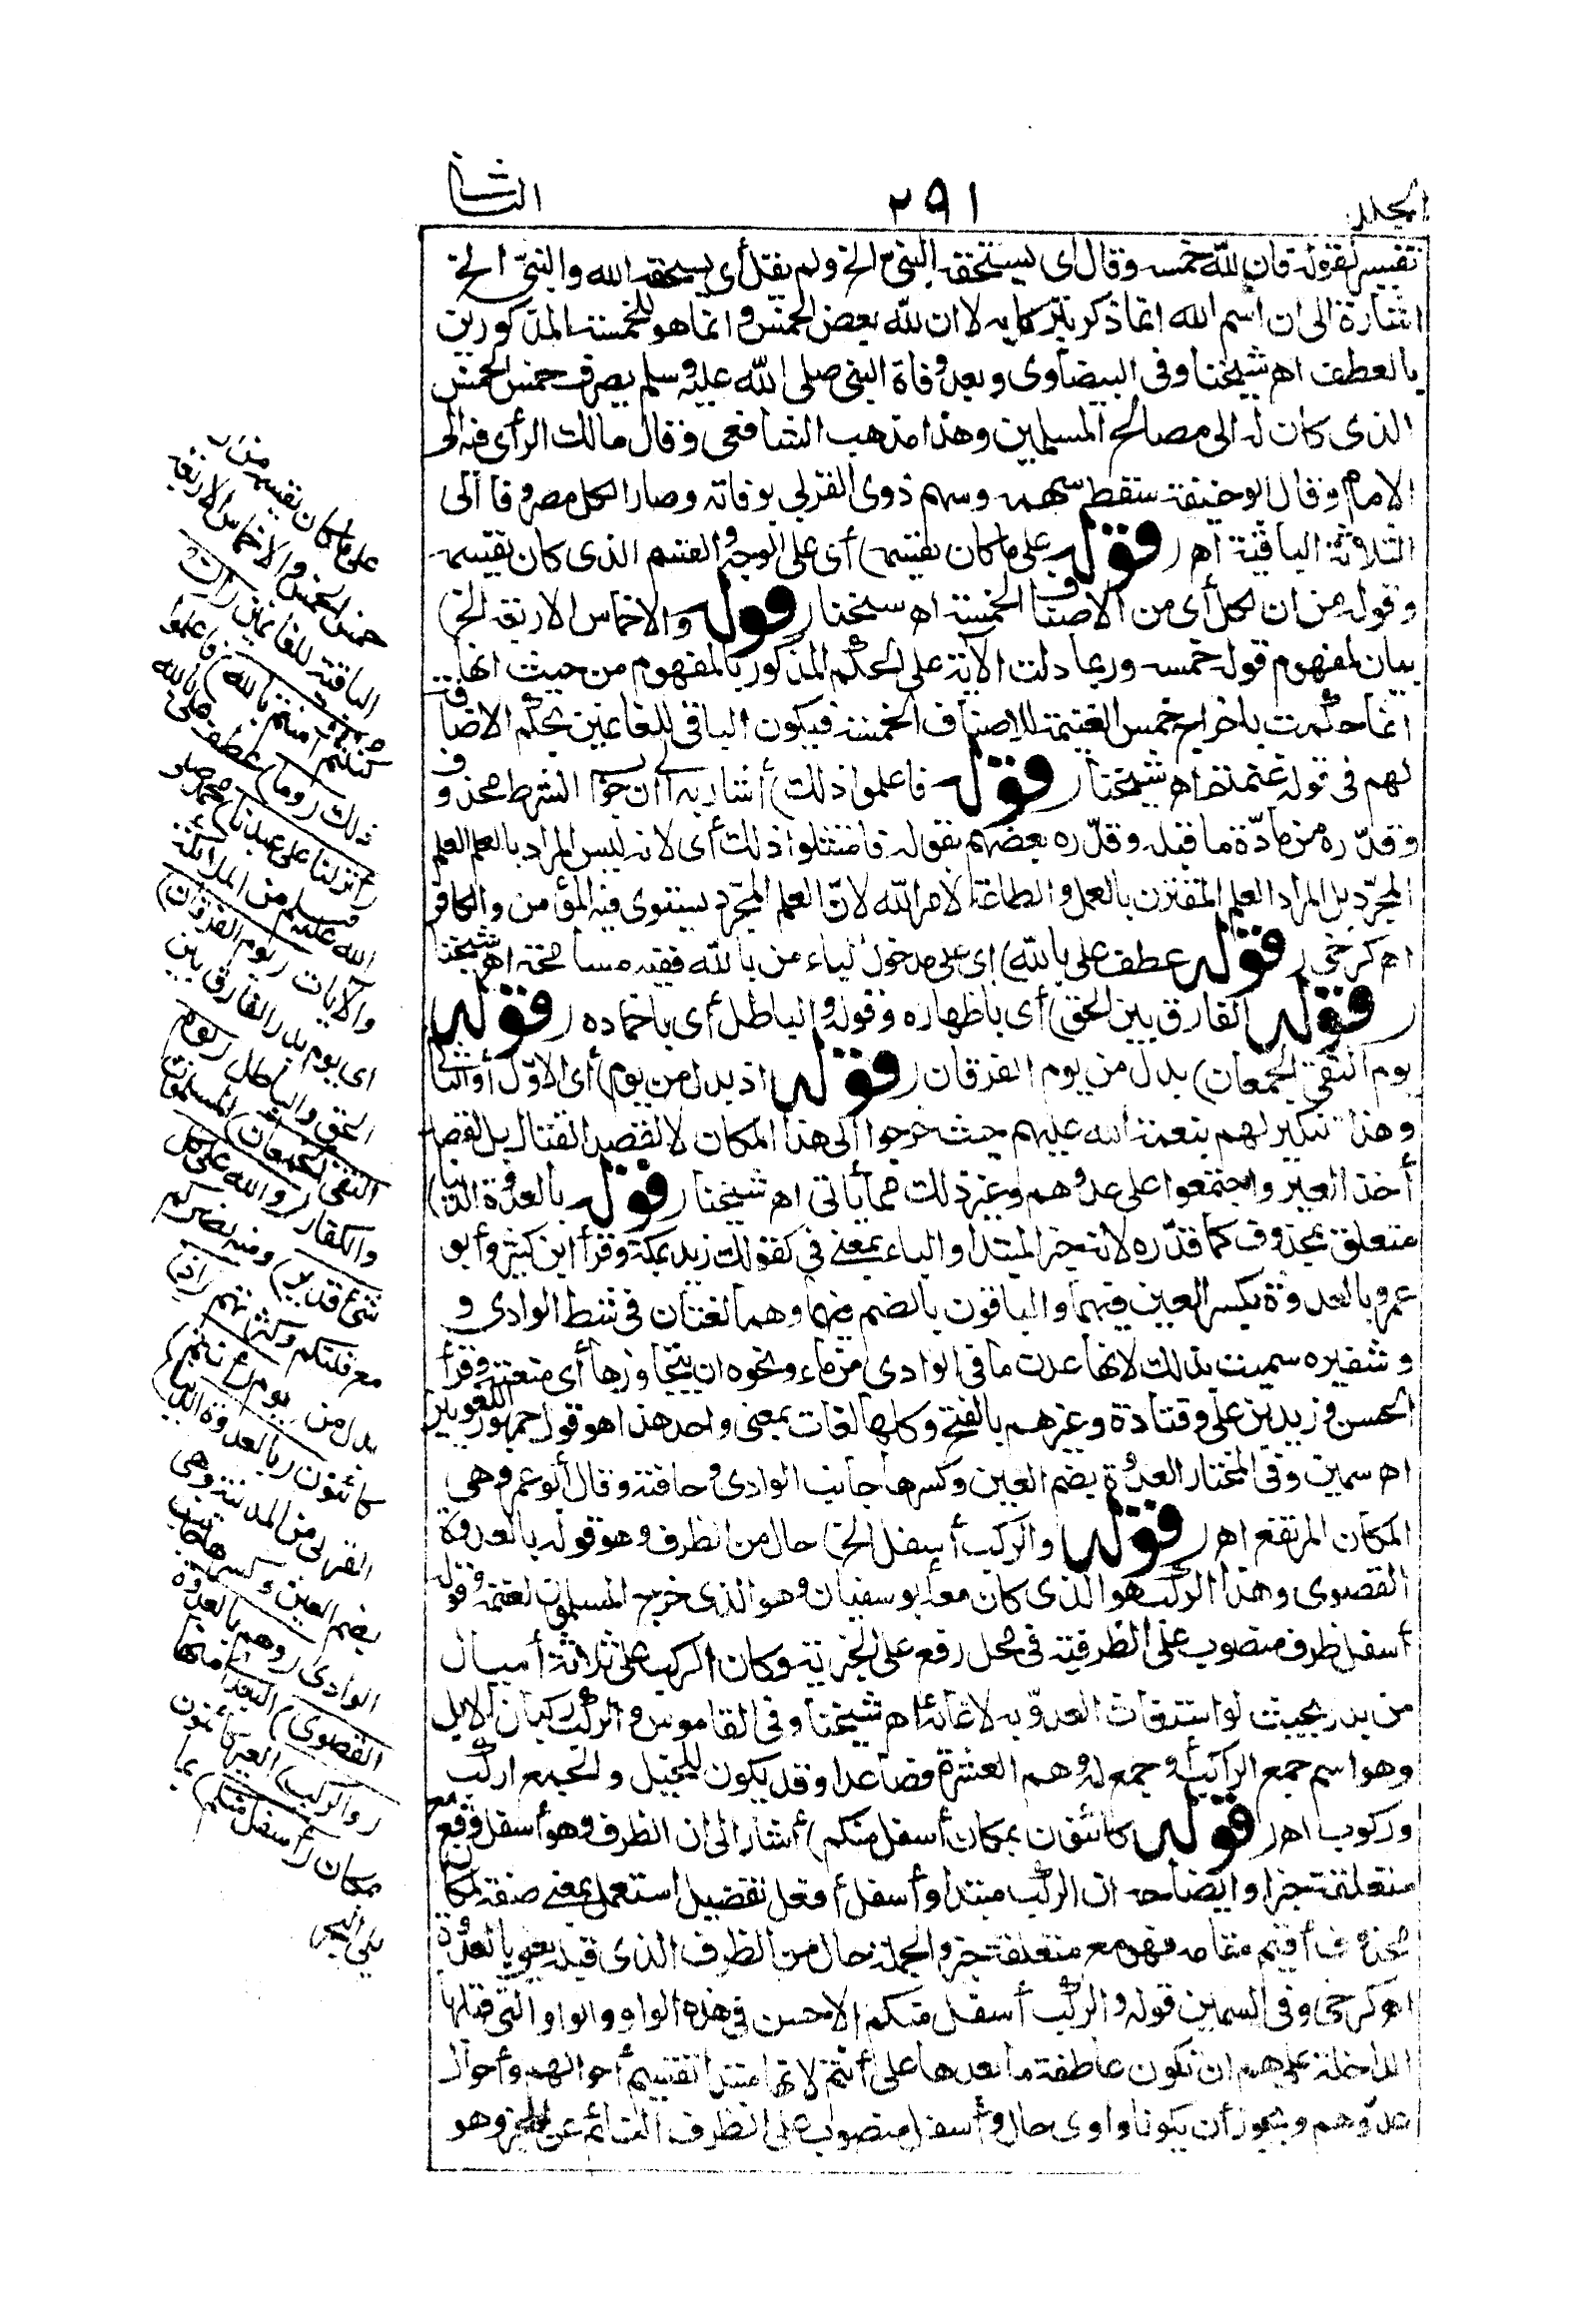 المجلد ٢٩١ الثانى
تفسير لقوله فان لله خمسه وقال أى يستحقه النبى الخ ولم يقل أى يستحقه الله والنبى الخ
اشارة الى ان اسم الله انما ذكر تبركا به لا ان لله بعض الخمس وانما هو للخمسة المذكورين
بالعطف اھ شيخنا وفى البيضاوى وبعد وفاة النبى صلى الله عليه وسلم يصرف خمس الخمس
الذى كان له الى مصالح المسلمين وهذا مذهب الشافعى وقال مالك الرأى فيه الى
الامام وقال ابو حنيفة سقط سهمه وسهم ذوى القربى بوفاته وصار الكل مصروفا الى
الثلاثة الباقية اھ (قوله على ما كان يقسمه) أى على الوجه والقسم الذى كان يقسمه
وقوله من ان لكل أى من الاصناف الخمسة اھ شيخنا (قوله والاخماس الاربعة الخ)
بيان لمفهوم قوله خمسه وربما دلت الآية على الحكم المذكور بالمفهوم من حيث انها
انما حكمت باخراج خمس الغنيمة للاصناف الخمسة فيكون الباقى للغانمين بحكم الاضافة
لهم فى قوله غنمتم اھ شيخنا (قوله فاعلموا ذلك) أشار به الى أن جواب الشرط محذوف
وقدّره من مادّة ما قبله وقدّره بعضهم بقوله فامتثلوا ذلك أى لانه ليس المراد بالعلم العلم
المجرّد بل المراد العلم المقترن بالعمل والطاعة لامر الله لانّ العلم المجرّد يستوى فيه المؤمن والكافر
اھ كرخى (قوله عطف على بالله) اى على مدخول الباء من بالله ففيه مسامحة اھ شيخنا
(قوله الفارق بين الحق) أى باظهاره وقوله والباطل أى باخماده (قوله
يوم التقى الجمعان) بدل من يوم الفرقان (قوله اذ بدل من يوم) أى الاوّل أو الثانى
وهذا تذكير لهم بنعمة الله عليهم حيث خرجوا الى هذا المكان لا لقصد القتال بل لقصد
أخذ العير واجتمعوا على عدوهم وغير ذلك مما يأتى اھ شيخنا (قوله بالعدوة الدنيا)
متعلق بمحذوف كما قدّره لانه خبر المبتدا والباء بمعنى فى كقولك زيد بمكة وقرأ ابن كثير وأبو
عمرو بالعدوة بكسر العين فيهما والباقون بالضم فيهما وهما لغتان فى شط الوادى و
وشفيره سميت بذلك لانها عدت ما فى الوادى من ماء ونحوه ان يتجاوزها أى منعته وقرأ
الحسن وزيد بن على وقتادة وغيرهم بالفتح وكلها لغات بمعنى واحد هذا هو قول جمهور اللغويين
اھ سمين وفى المختار العدوة بضم العين وكسرها جانب الوادى وحافته وقال أبو عمرو هى
المكان المرتفع اھ (قوله والركب أسفل الخ) حال من الظرف وهو قوله بالعدوة
القصوى وهذا الركب هو الذى كان معه أبو سفيان وهو الذى خرج المسلمون لغنمه وقوله
أسفل ظرف منصوب على الظرفية فى محل رفع على الخبرية وكان الركب على ثلاثة أميال
من بدر بحيث لو استغاث العدوّ به لاغاثه اھ شيخنا وفى القاموس والركب ركبان الابل
وهو اسم جمع الراكب أو جمع له وهم العشرة فصاعدا وقد يكون للخيل والجمع اركب
وركوب اھ (قوله كائنون بمكان أسفل منكم) أشار الى ان الظرف وهو أسفل وقع مع
متعلقه خبرا وايضاحه ان الركب مبتدا وأسفل أفعل تفضيل استعمل بمعنى صفة لمكان
محذوف أقيم مقامه فهو مع متعلقه خبر والجملة حال من الظرف الذى قبله يعنى بالعدوة
اھ كرخى وفى السمين قوله والركب أسفل منكم الاحسن فى هذه الواو والواو التى قبلها
الداخلة على هم ان تكون عاطفة ما بعدها على أنتم لانها مبتدا تقسيم أحوالهم وأحوال
عدوّهم ويجوز أن يكونا واوى حال وأسفل منصوب على الظرف القائم عن الخبر وهو
على ما كان يقسمه من
خمس الخمس والاخماس الاربعة
الباقية للغانمين (ان
كنتم آمنتم بالله) فاعلموا
ذلك (وما) عطف على بالله
(أنزلنا على عبدنا) محمد صلى
الله عليه وسلم من الملائكة
والآيات (يوم الفرقان)
اى يوم بدر الفارق بين
الحق والباطل (يوم
التقى الجمعان) المسلمون
والكفار (والله على كل
شئ قدير) ومنه نصركم
مع قلتكم وكثرتهم (اذ)
بدل من يوم (أنتم)
كائنون (بالعدوة الدنيا)
القربى من المدينة وهى
بضم العين وكسرها جانب
الوادى (وهم بالعدوة
القصوى) البعدى منها
(والركب) العير كائنون
بمكان (أسفل منكم) مما
يلى البحر